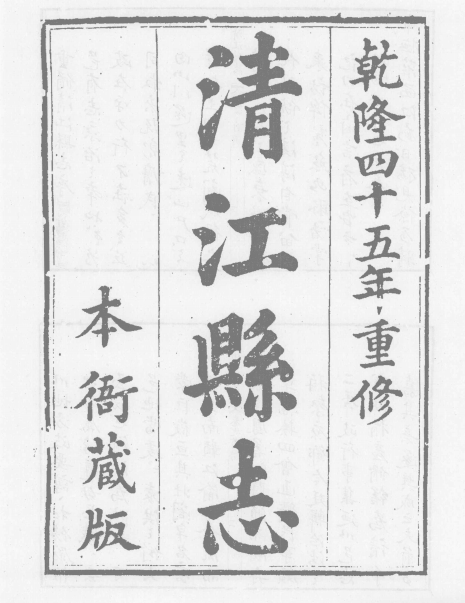 乾隆四十五年重修
清江縣志
本衙藏版